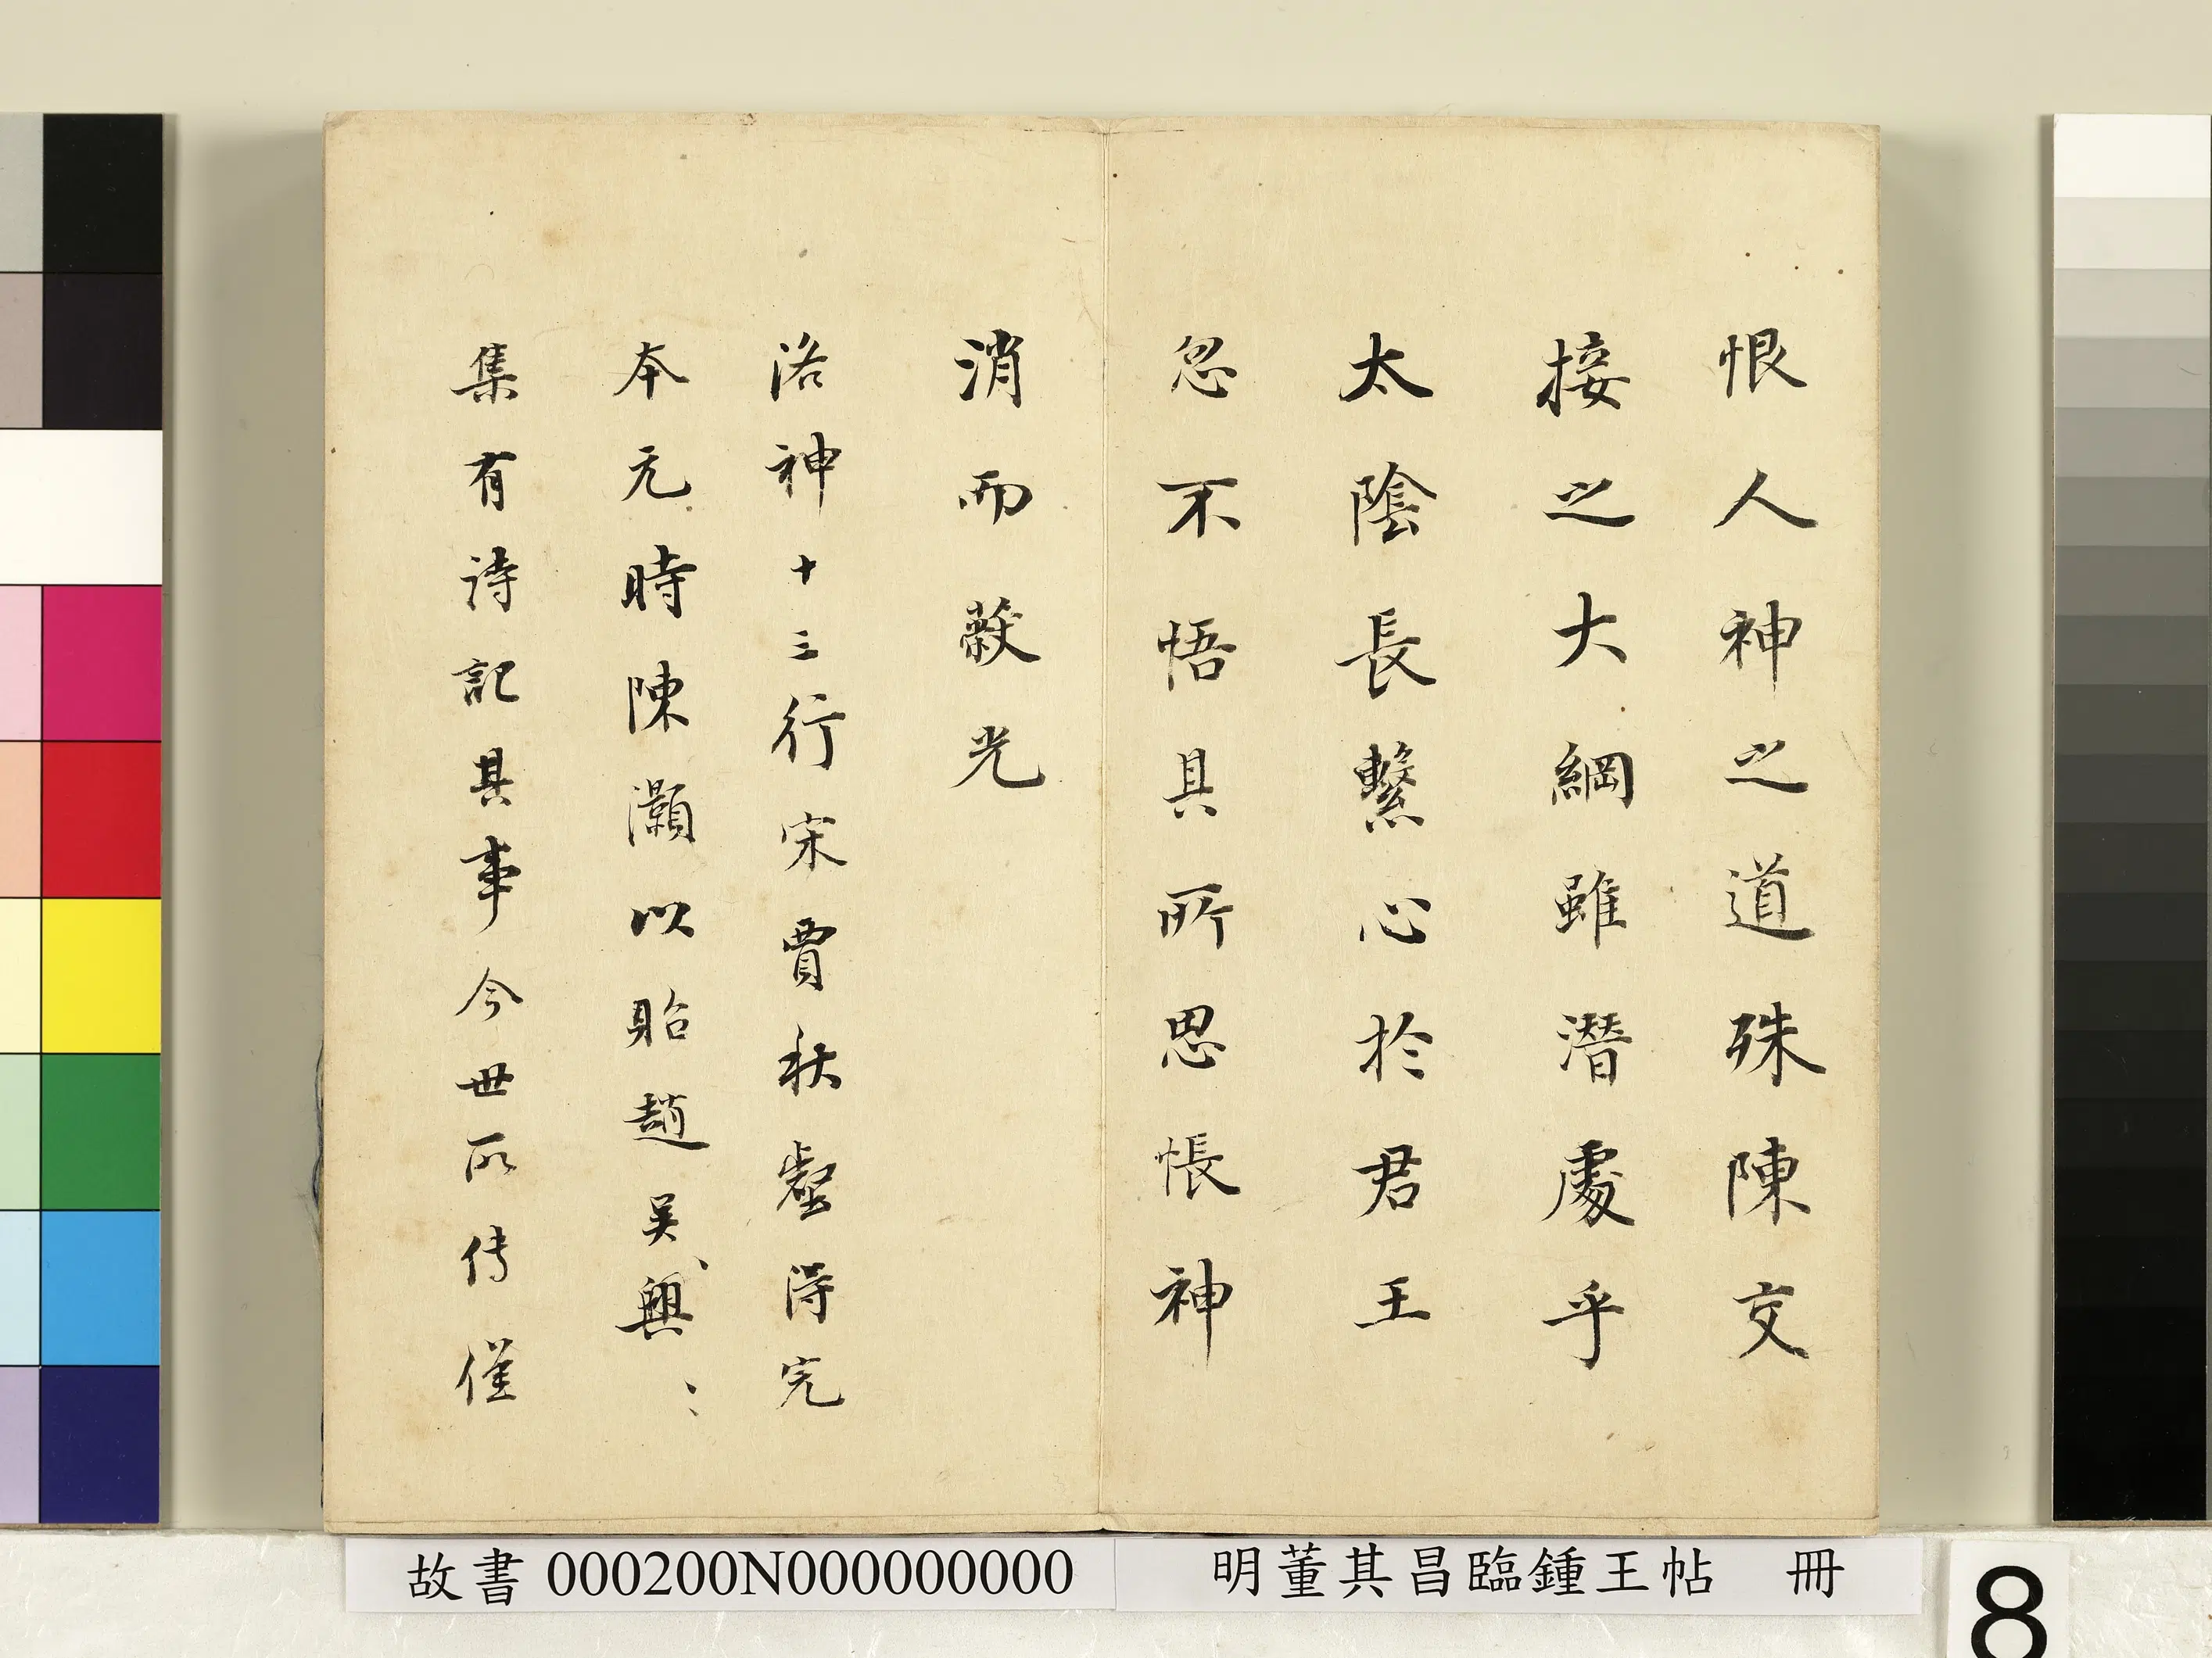 恨人神之道殊陳交
接之大綱雖潛處乎
太陰長繫心於君王
忽不悟其所思悵神
消而蔽光
洛神十三行宋賈秋壑得完
本元時陳灝以貽趙吳興
集有詩記其事今世所傳僅
故書 000200N000000000
明董其昌臨鍾王帖 冊
8